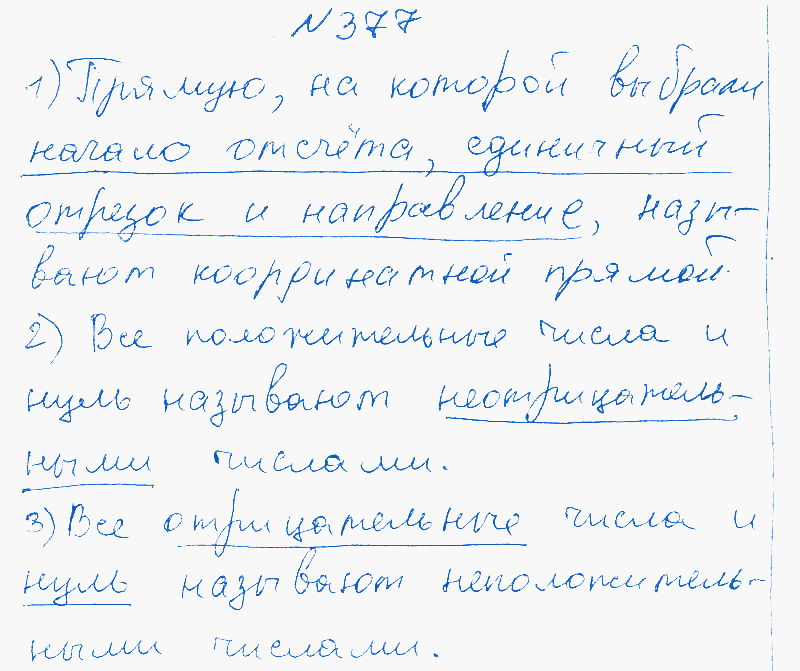 №377
1) Прямую, на которой выбрали
начало отсчёта, единичный
отрезок и направление, назы-
вают координатной прямой.
2) Все положительные числа и
нуль называют неотрицатель-
ными числами.
3) Все отрицательные числа и
нуль называют неположитель-
ными числами.